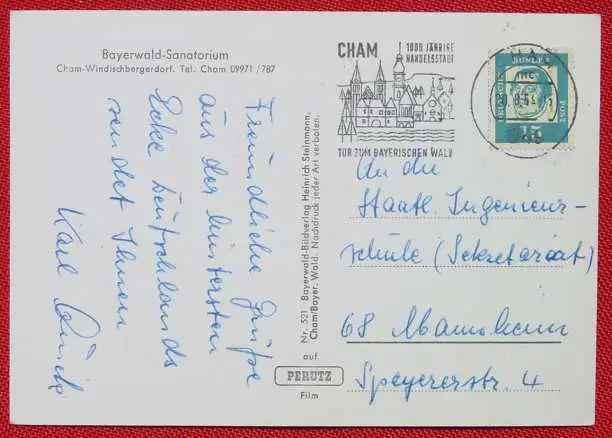 Bayerwald-Sanatorium
Cham-Windischbergerdorf. Tel. Cham 09971/787
Freundliche Grüße
aus der hintersten
Ecke Deutschlands
sendet Ihnen
Karl
Nr. 521 Bayerwald-Bildverlag Heinrich Steinmann,
Cham/Bayer. Wald. Nachdruck jeder Art verboten.
auf
PERUTZ
Film
CHAM
1000 JÄHRIGE
HANDELSSTADT
TOR ZUM BAYERISCHEN WALD
DEUTSCHE
BUNDES
POST
15
An die
Staatl. Ingenieur-
schule (Sekretariat)
68 Mannheim
Speyererstr. 4